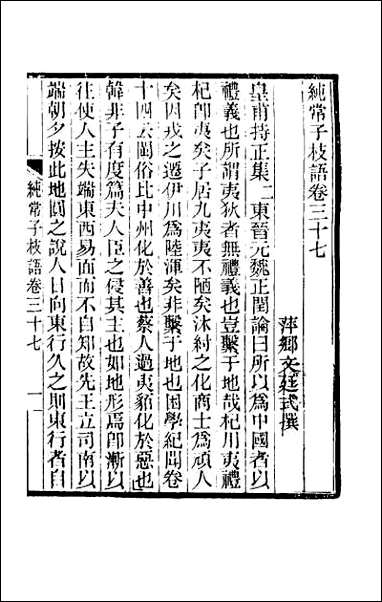 純常子枝語卷三十七
萍鄉文廷式撰
皇甫持正集二東晉元魏正閏論曰所以爲中國者以
禮義也所謂夷狄者無禮義也豈繫于地哉杞用夷禮
杞卽夷矣子居九夷夷不陋矣沐紂之化商士爲頑人
矣因戎之遷伊川爲陸渾矣非繫于地也困學紀聞卷
十四云閩俗比中州化於善也蔡人過夷貊化於惡也
韓非子有度篇夫人臣之侵其主也如地形焉卽漸以
往使人主失端東西易面而不自知故先王立司南以
端朝夕按此地圓之說人日向東行久之則東行者自
純常子枝語卷三十七
一